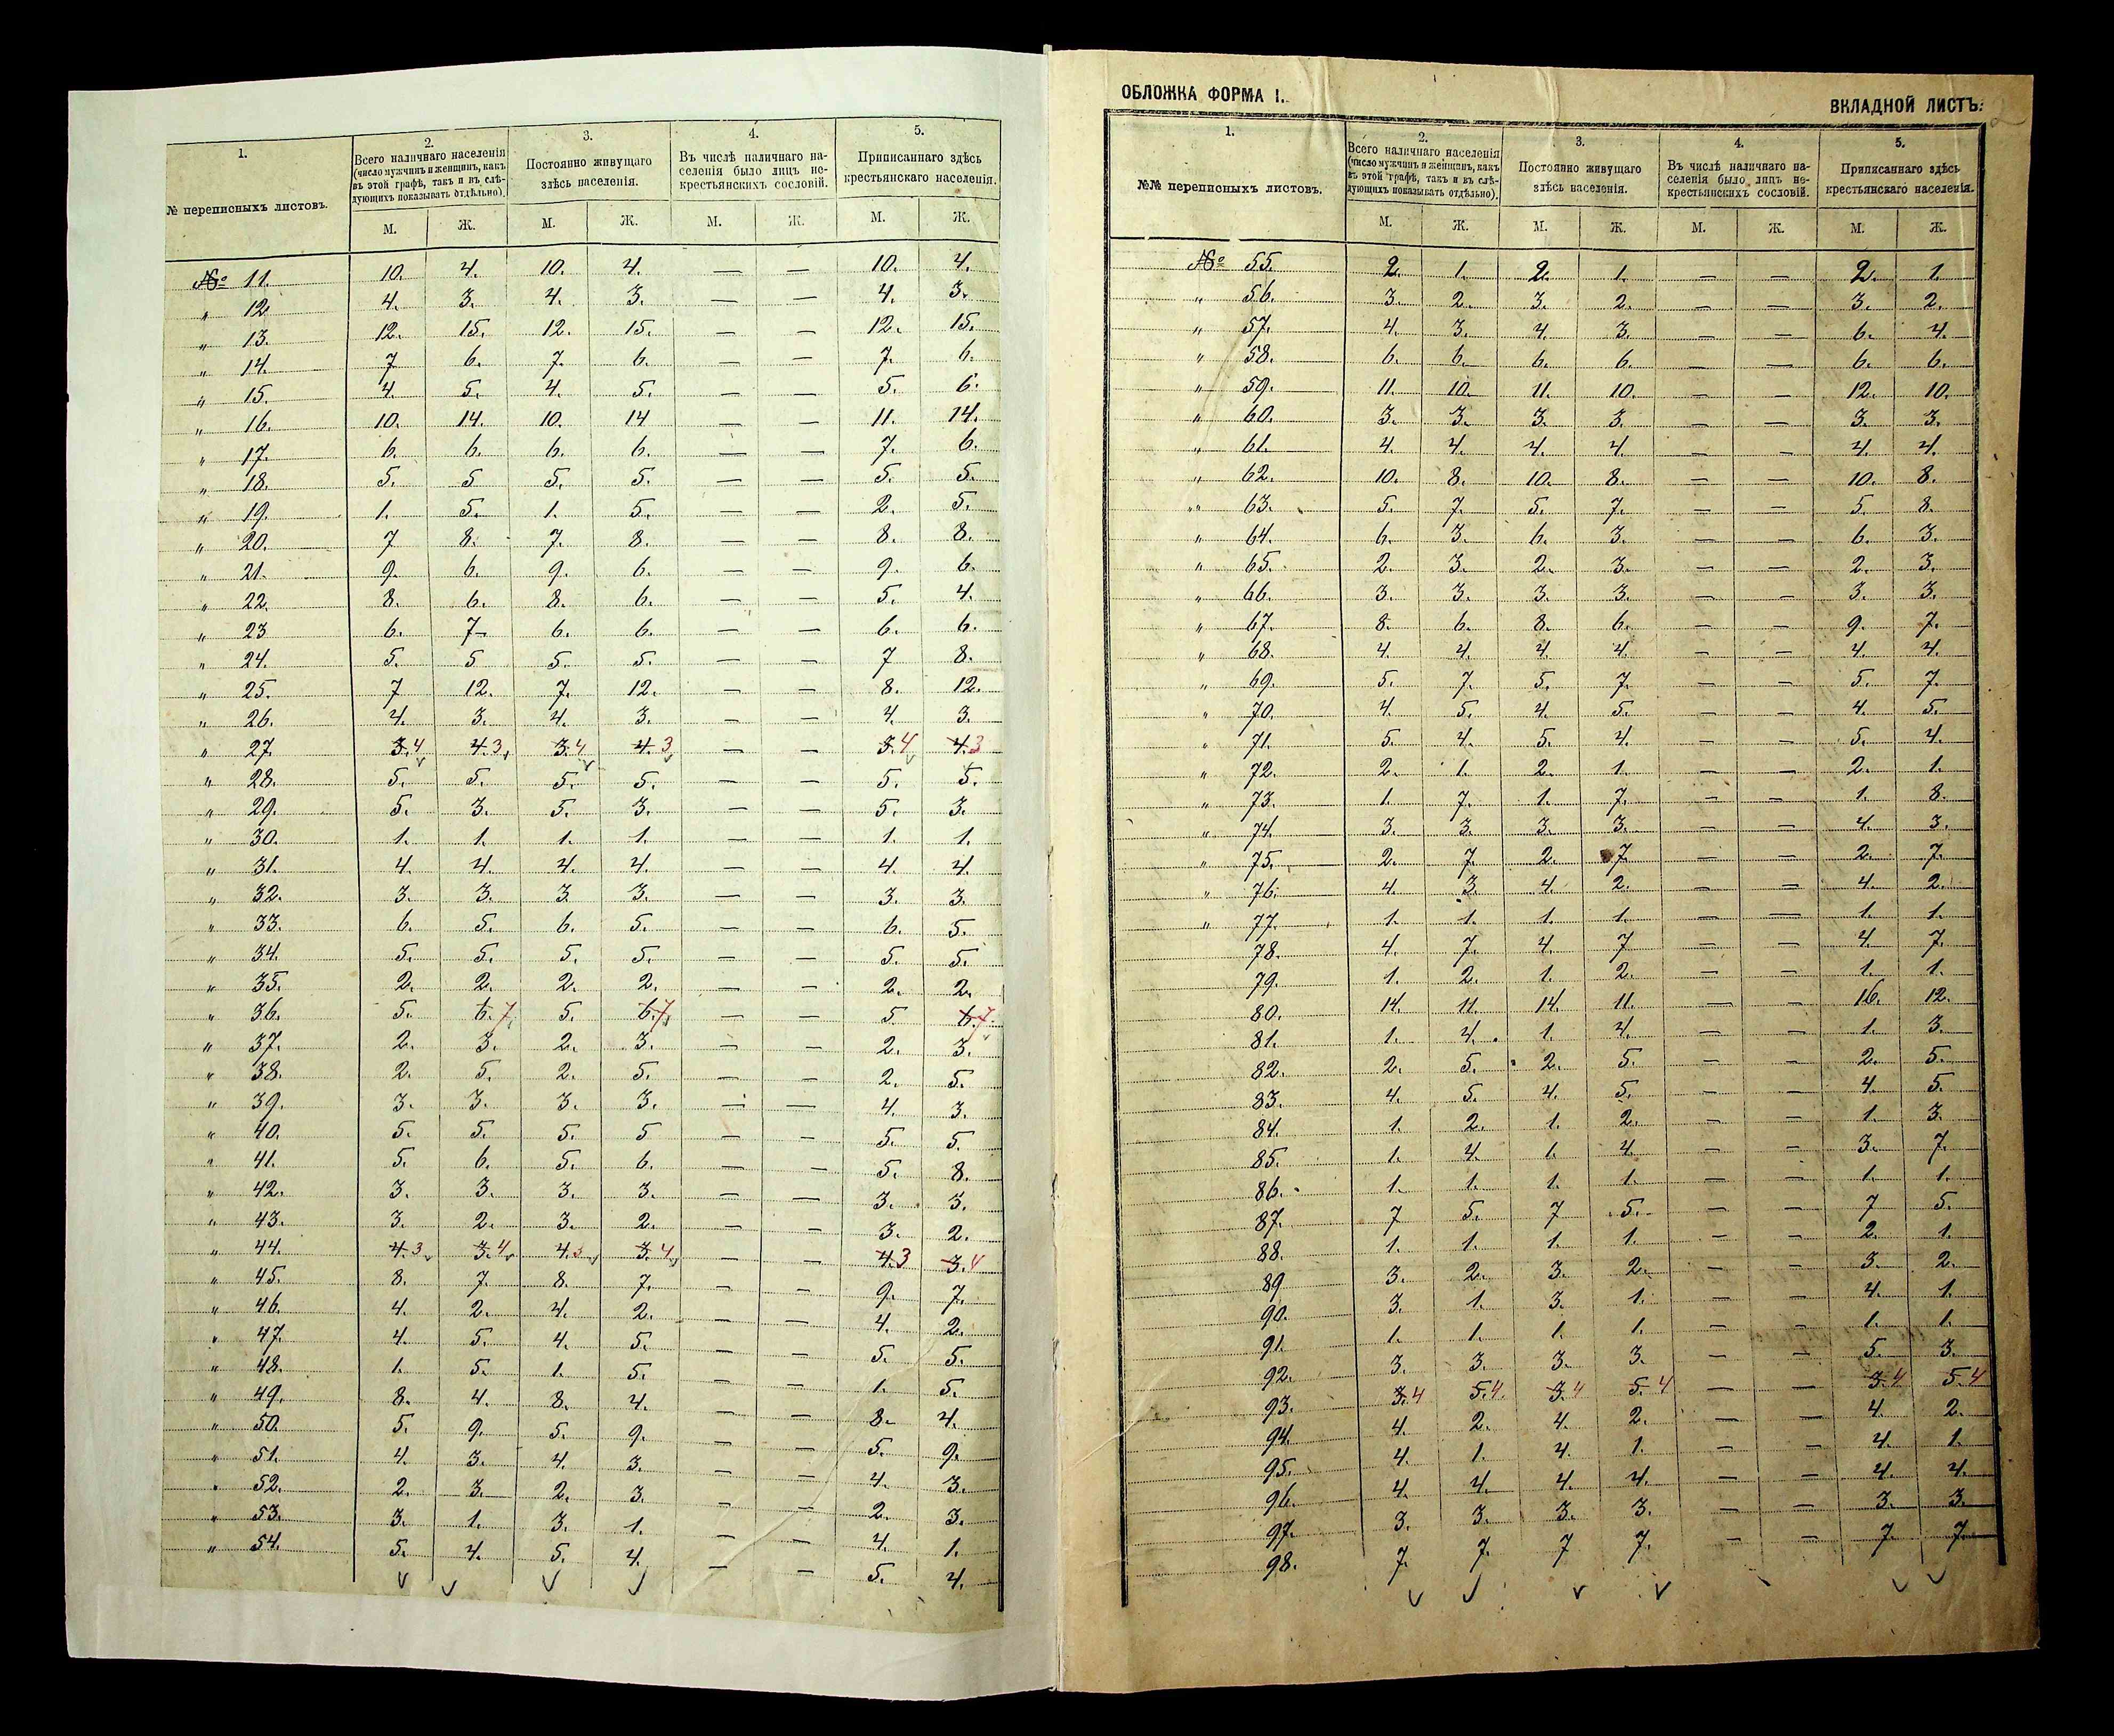 1.
2.
3.
4.
5.
№ переписныхъ листовъ.
Всего наличнаго населенія
(число мужчинъ и женщинъ, какъ
въ этой графѣ, такъ и въ слѣ-
дующихъ показывать отдѣльно).
Постоянно живущаго
здѣсь населенія.
Въ числѣ наличнаго на-
селенія было лицъ не-
крестьянскихъ сословій.
Приписаннаго здѣсь
крестьянскаго населенія.
М. Ж. М. Ж. М. Ж. М. Ж.
№ 11. 10. 4. 10. 4. — — 10. 4.
„ 12 4. 3. 4. 3. — — 4. 3.
„ 13. 12. 15. 12. 15. — — 12. 15.
„ 14. 7 6. 7. 6. — — 7. 6.
„ 15. 4. 5. 4. 5. — — 5. 6.
„ 16. 10. 14. 10. 14 — — 11. 14.
„ 17. 6. 6. 6. 6. — — 7. 6.
„ 18. 5. 5 5. 5. — — 5. 5.
„ 19. 1. 5. 1. 5. — — 2. 5.
„ 20. 7 8. 7. 8. — — 8. 8.
„ 21. 9. 6. 9. 6. — — 9. 6.
„ 22. 8. 6. 8. 6. — — 5. 4.
„ 23 6. 7 6. 6. — — 6. 6.
„ 24. 5. 5 5. 5. — — 7 8.
„ 25. 7 12. 7. 12. — — 8. 12.
„ 26. 4. 3. 4. 3. — — 4. 3.
„ 27. 3. 4 4. 3. 3. 4 4. 3 — — 3. 4 4. 3
„ 28. 5. 5. 5. 5. — — 5. 5.
„ 29. 5. 3. 5. 3. — — 5. 3.
„ 30. 1. 1. 1. 1. — — 1. 1.
„ 31. 4. 4. 4. 4. — — 4. 4.
„ 32. 3. 3. 3. 3. — — 3. 3.
„ 33. 6. 5. 6. 5. — — 6. 5.
„ 34. 5. 5. 5. 5. — — 5. 5.
„ 35. 2. 2. 2. 2. — — 2. 2.
„ 36. 5. 6. 7. 5. 6. 7. — — 5. 6. 7.
„ 37. 2. 3. 2. 3. — — 2. 3.
„ 38. 2. 5. 2. 5. — — 2. 5.
„ 39. 3. 3. 3. 3. — — 4. 3.
„ 40. 5. 5. 5. 5 — — 5. 5.
„ 41. 5. 6. 5. 6. — — 5. 8.
„ 42. 3. 3. 3. 3. — — 3. 3.
„ 43. 3. 2. 3. 2. — — 3. 2.
„ 44. 4. 3. 3. 4. 4. 3. 3. 4. — — 4. 3 3. 4
„ 45. 8. 7. 8. 7. — — 9. 7.
„ 46. 4. 2. 4. 2. — — 4. 2.
„ 47. 4. 5. 4. 5. — — 5. 5.
„ 48. 1. 5. 1. 5. — — 1. 5.
„ 49. 8. 4. 8. 4. — — 8. 4.
„ 50. 5. 9. 5. 9. — — 5. 9.
„ 51. 4. 3. 4. 3. — — 4. 3.
„ 52. 2. 3. 2. 3. — — 2. 3.
„ 53. 3. 1. 3. 1. — — 4. 1.
„ 54. 5. 4. 5. 4. — — 5. 4.
ОБЛОЖКА ФОРМА I.
ВКЛАДНОЙ ЛИСТЪ.
2
1.
2.
3.
4.
5.
№№ переписныхъ листовъ.
Всего наличнаго населенія
(число мужчинъ и женщинъ, какъ
въ этой графѣ, такъ и въ слѣ-
дующихъ показывать отдѣльно).
Постоянно живущаго
здѣсь населенія.
Въ числѣ наличнаго на-
селенія было лицъ не-
крестьянскихъ сословій.
Приписаннаго здѣсь
крестьянскаго населенія.
М. Ж. М. Ж. М. Ж. М. Ж.
№ 55. 2. 1. 2. 1. — — 2. 1.
„ 56. 3. 2. 3. 2. — — 3. 2.
„ 57. 4. 3. 4. 3. — — 6. 4.
„ 58. 6. 6. 6. 6. — — 6. 6.
„ 59. 11. 10. 11. 10. — — 12. 10.
„ 60. 3. 3. 3. 3. — — 3. 3.
„ 61. 4. 4. 4. 4. — — 4. 4.
„ 62. 10. 8. 10. 8. — — 10. 8.
„ 63. 5. 7. 5. 7. — — 5. 8.
„ 64. 6. 3. 6. 3. — — 6. 3.
„ 65. 2. 3. 2. 3. — — 2. 3.
„ 66. 3. 3. 3. 3. — — 3. 3.
„ 67. 8. 6. 8. 6. — — 9. 7.
„ 68. 4. 4. 4. 4. — — 4. 4.
„ 69. 5. 7. 5. 7. — — 5. 7.
„ 70. 4. 5. 4. 5. — — 4. 5.
„ 71. 5. 4. 5. 4. — — 5. 4.
„ 72. 2. 1. 2. 1. — — 2. 1.
„ 73. 1. 7. 1. 7. — — 1. 8.
„ 74. 3. 3. 3. 3. — — 4. 3.
„ 75. 2. 7. 2. 7 — — 2. 7.
„ 76. 4. 3 4. 2. — — 4. 2.
„ 77. 1. 1. 1. 1. — — 1. 1.
78. 4. 7. 4. 7 — — 4. 7.
79. 1. 2. 1. 2. — — 1. 1.
80. 14. 11. 14. 11. — — 16. 12.
81. 1. 4. 1. 4. — — 1. 3.
82. 2. 5. 2. 5. — — 2. 5.
83. 4. 5. 4. 5. — — 4. 5.
84. 1. 2. 1. 2. — — 1. 3.
85. 1. 4. 1. 4. — — 3. 7.
86. 1. 1. 1. 1. — — 1. 1.
87. 7 5. 7 5. — — 7 5.
88. 1. 1. 1. 1. — — 2. 1.
89 3. 2. 3. 2. — — 3. 2.
90. 3. 1. 3. 1. — — 4. 1.
91. 1. 1. 1. 1. — — 1. 1.
92. 3. 3. 3. 3. — — 5. 3.
93. 3. 4 5. 4. 3. 4 5. 4 — — 3. 4 5. 4
94. 4. 2. 4. 2. — — 4. 2.
95. 4. 1. 4. 1. — — 4. 1.
96. 4. 4. 4. 4. — — 4. 4.
97. 3. 3. 3. 3. — — 3. 3.
98. 7. 7. 7 7. — — 7. 7.